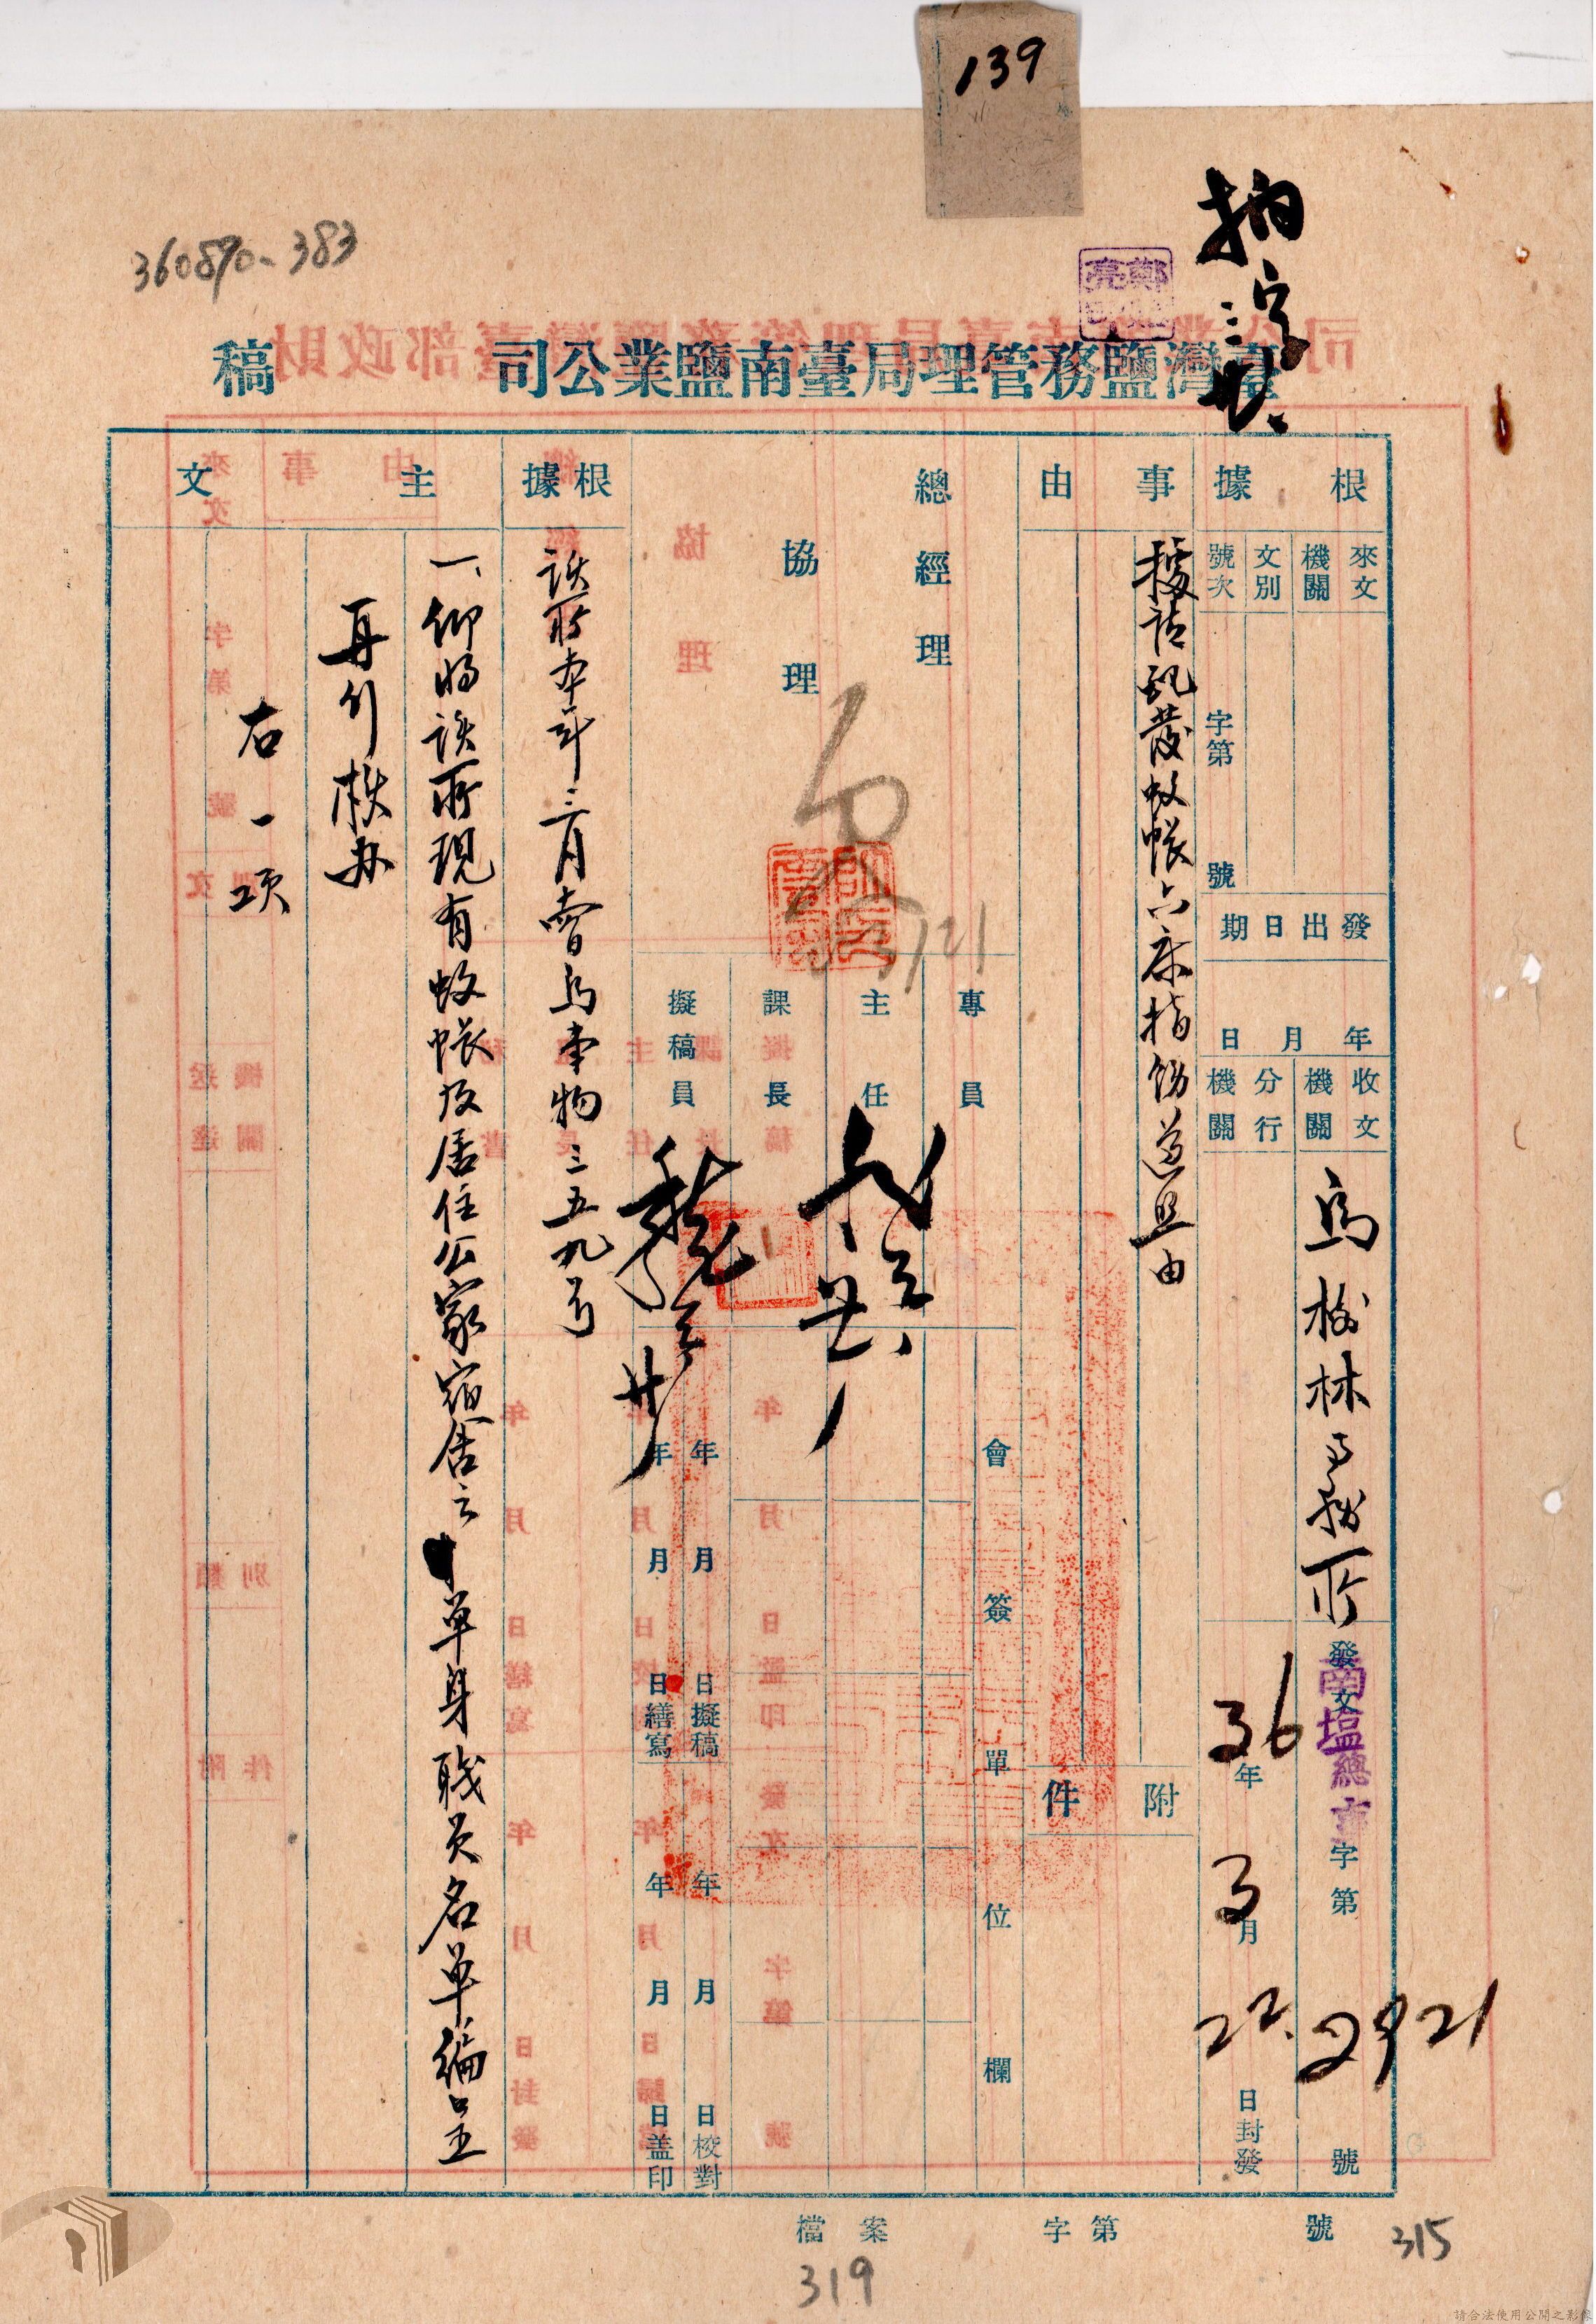 139
360870-383
鄭
亮
臺灣鹽務管理局臺南鹽業公司 稿
根據
來文機關
文別
號次
字第 號
發出日期
年 月 日
收文機關
烏樹林事務所
分行機關
發文
南塩總
字第
2921
號
36年3月22日封發
事由
據請配發蚊帳六床指飭遵照由
附件
總經理
協理
3/21
專員
主任
課長
擬稿員
會簽單位欄
年 月 日擬稿
年 月 日繕寫
年 月 日校對
年 月 日盖印
根據
該所本年三月 烏 物三五九号
主文
一、仰將該所現有蚊帳及居住公家宿舍之單身職員名單編呈
再行核办
右一項
檔案 字第 號
315
319
請合法使用公開之影像